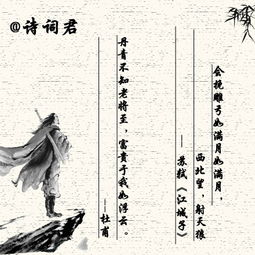 @诗词君
会挽雕弓如满月如满月，
西北望，射天狼
——苏轼《江城子》
丹青不知老将至，富贵于我如浮云。
——杜甫